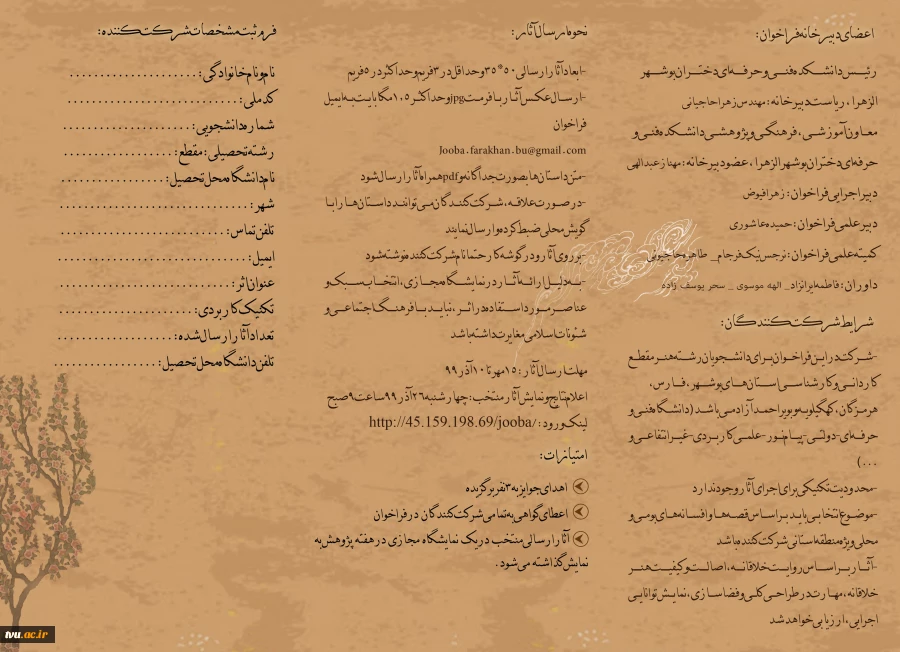 اعضای دبیرخانه فراخوان:
رئیس دانشکده فنی و حرفه ای دختران بوشهر
الزهرا، ریاست دبیرخانه: مهندس زهرا حاجیانی
معاون آموزشی، فرهنگی و پژوهشی دانشکده فنی و
حرفه ای دختران بوشهر الزهرا، عضو دبیرخانه: مهناز عبدالهی
دبیر اجرایی فراخوان: زهرا فیوض
دبیر علمی فراخوان: حمیده عاشوری
کمیته علمی فراخوان: نرجس نیک فرجام_ طاهره حاجیونی
داوران: فاطمه ایرانزاد_ الهه موسوی _ سحر یوسف زاده
شرایط شرکت کنندگان:
-شرکت در این فراخوان برای دانشجویان رشته هنر مقطع
کاردانی و کارشناسی استان های بوشهر، فارس،
هرمزگان، کهگیلویه و بویراحمد آزاد می باشد (دانشگاه فنی و
حرفه ای-دولتی-پیام نور-علمی کاربردی-غیرانتفاعی و
...)
-محدودیت تکنیکی برای اجرای آثار وجود ندارد
-موضوع انتخابی باید بر اساس قصه ها و افسانه های بومی و
محلی ویژه منطقه استانی شرکت کننده باشد
-آثار بر اساس روایت خلاقانه، اصالت و کیفیت هنر
خلاقانه، مهارت در طراحی کلی و فضاسازی، نمایش توانایی
اجرایی، ارزیابی خواهد شد
نحوه ارسال آثار:
-ابعاد آثار ارسالی ۵۰*۳۵ و حداقل در ۳ فریم و حداکثر در ۵ فریم
-ارسال عکس آثار با فرمت jpg و حداکثر ۱،۵ مگابایت به ایمیل
فراخوان
Jooba.farakhan.bu@gmail.com
-متن داستان ها بصورت جداگانه و pdf همراه آثار ارسال شود
-در صورت علاقه، شرکت کنندگان می توانند داستان ها را با
گویش محلی ضبط کرده و ارسال نمایند
-بر روی آثار و در گوشه کار حتما نام شرکت کننده نوشته شود
-به دلیل ارائه آثار در نمایشگاه مجازی، انتخاب سبک و
عناصر مورد استفاده در اثر، نباید با فرهنگ اجتماعی و
شئونات اسلامی مغایرت داشته باشد
مهلت ارسال آثار: ۱۵ مهر تا ۱۰ آذر ۹۹
اعلام نتایج و نمایش آثار منتخب: چهارشنبه ۲۶ آذر ۹۹ ساعت ۹ صبح
لینک ورود: http://45.159.198.69/jooba/
امتیازات:
اهدای جوایز به ۳ نفر برگزیده
اعطای گواهی به تمامی شرکت کنندگان در فراخوان
آثار ارسالی منتخب در یک نمایشگاه مجازی در هفته پژوهش به
نمایش گذاشته می شود.
فرم ثبت مشخصات شرکت کننده:
نام و نام خانوادگی:.....................
کد ملی:............................
شماره دانشجویی:.....................
رشته تحصیلی: مقطع:..................
نام دانشگاه محل تحصیل:.................
شهر:...............................
تلفن تماس:...........................
ایمیل:...............................
عنوان اثر:............................
تکنیک کاربردی:......................
تعداد آثار ارسال شده:...................
تلفن دانشگاه محل تحصیل:.................
tvu.ac.ir